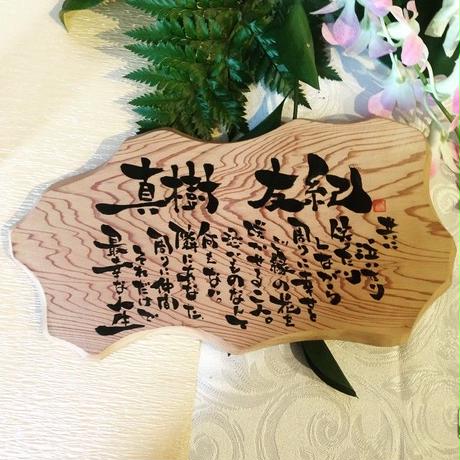 真樹 友紀
共に
泣いたり
しながら
周りに幸せと
ご縁の花を
咲かせる二人。
恐いものなんて
何もない。
隣にあなた
周りに仲間
それだけで
最幸な人生